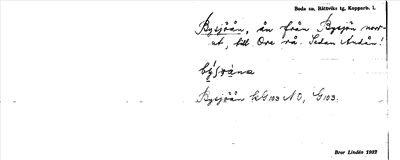 Boda sn, Rättviks tg, Kopparb. l.
Bysjöån, ån från Bysjön norr-
ut, till Ore å. Sedan Andån!
Bysjöån kG103 NO, G103.
Bror Lindén 1932